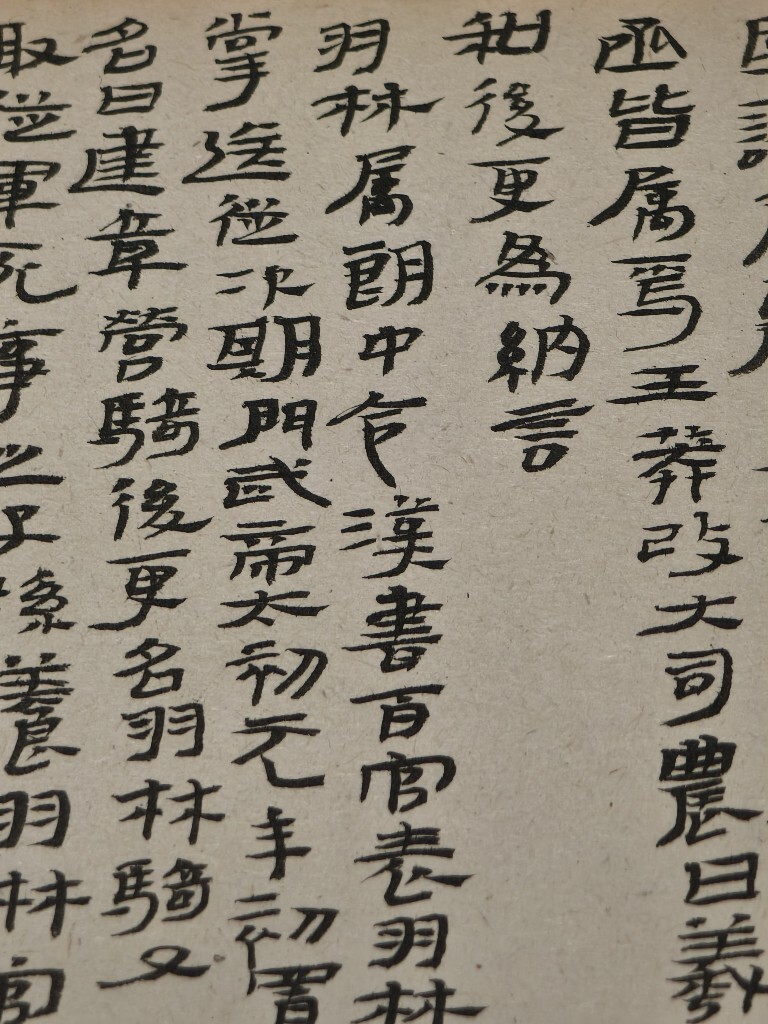 國諸
丞皆属焉王莽改大司農曰羲
和後更為納言
羽林属朗中令漢書百官表羽林
掌送從次期門武帝太初元年初置
名曰建章營騎後更名羽林騎又
取從軍死事之子孫養羽林官